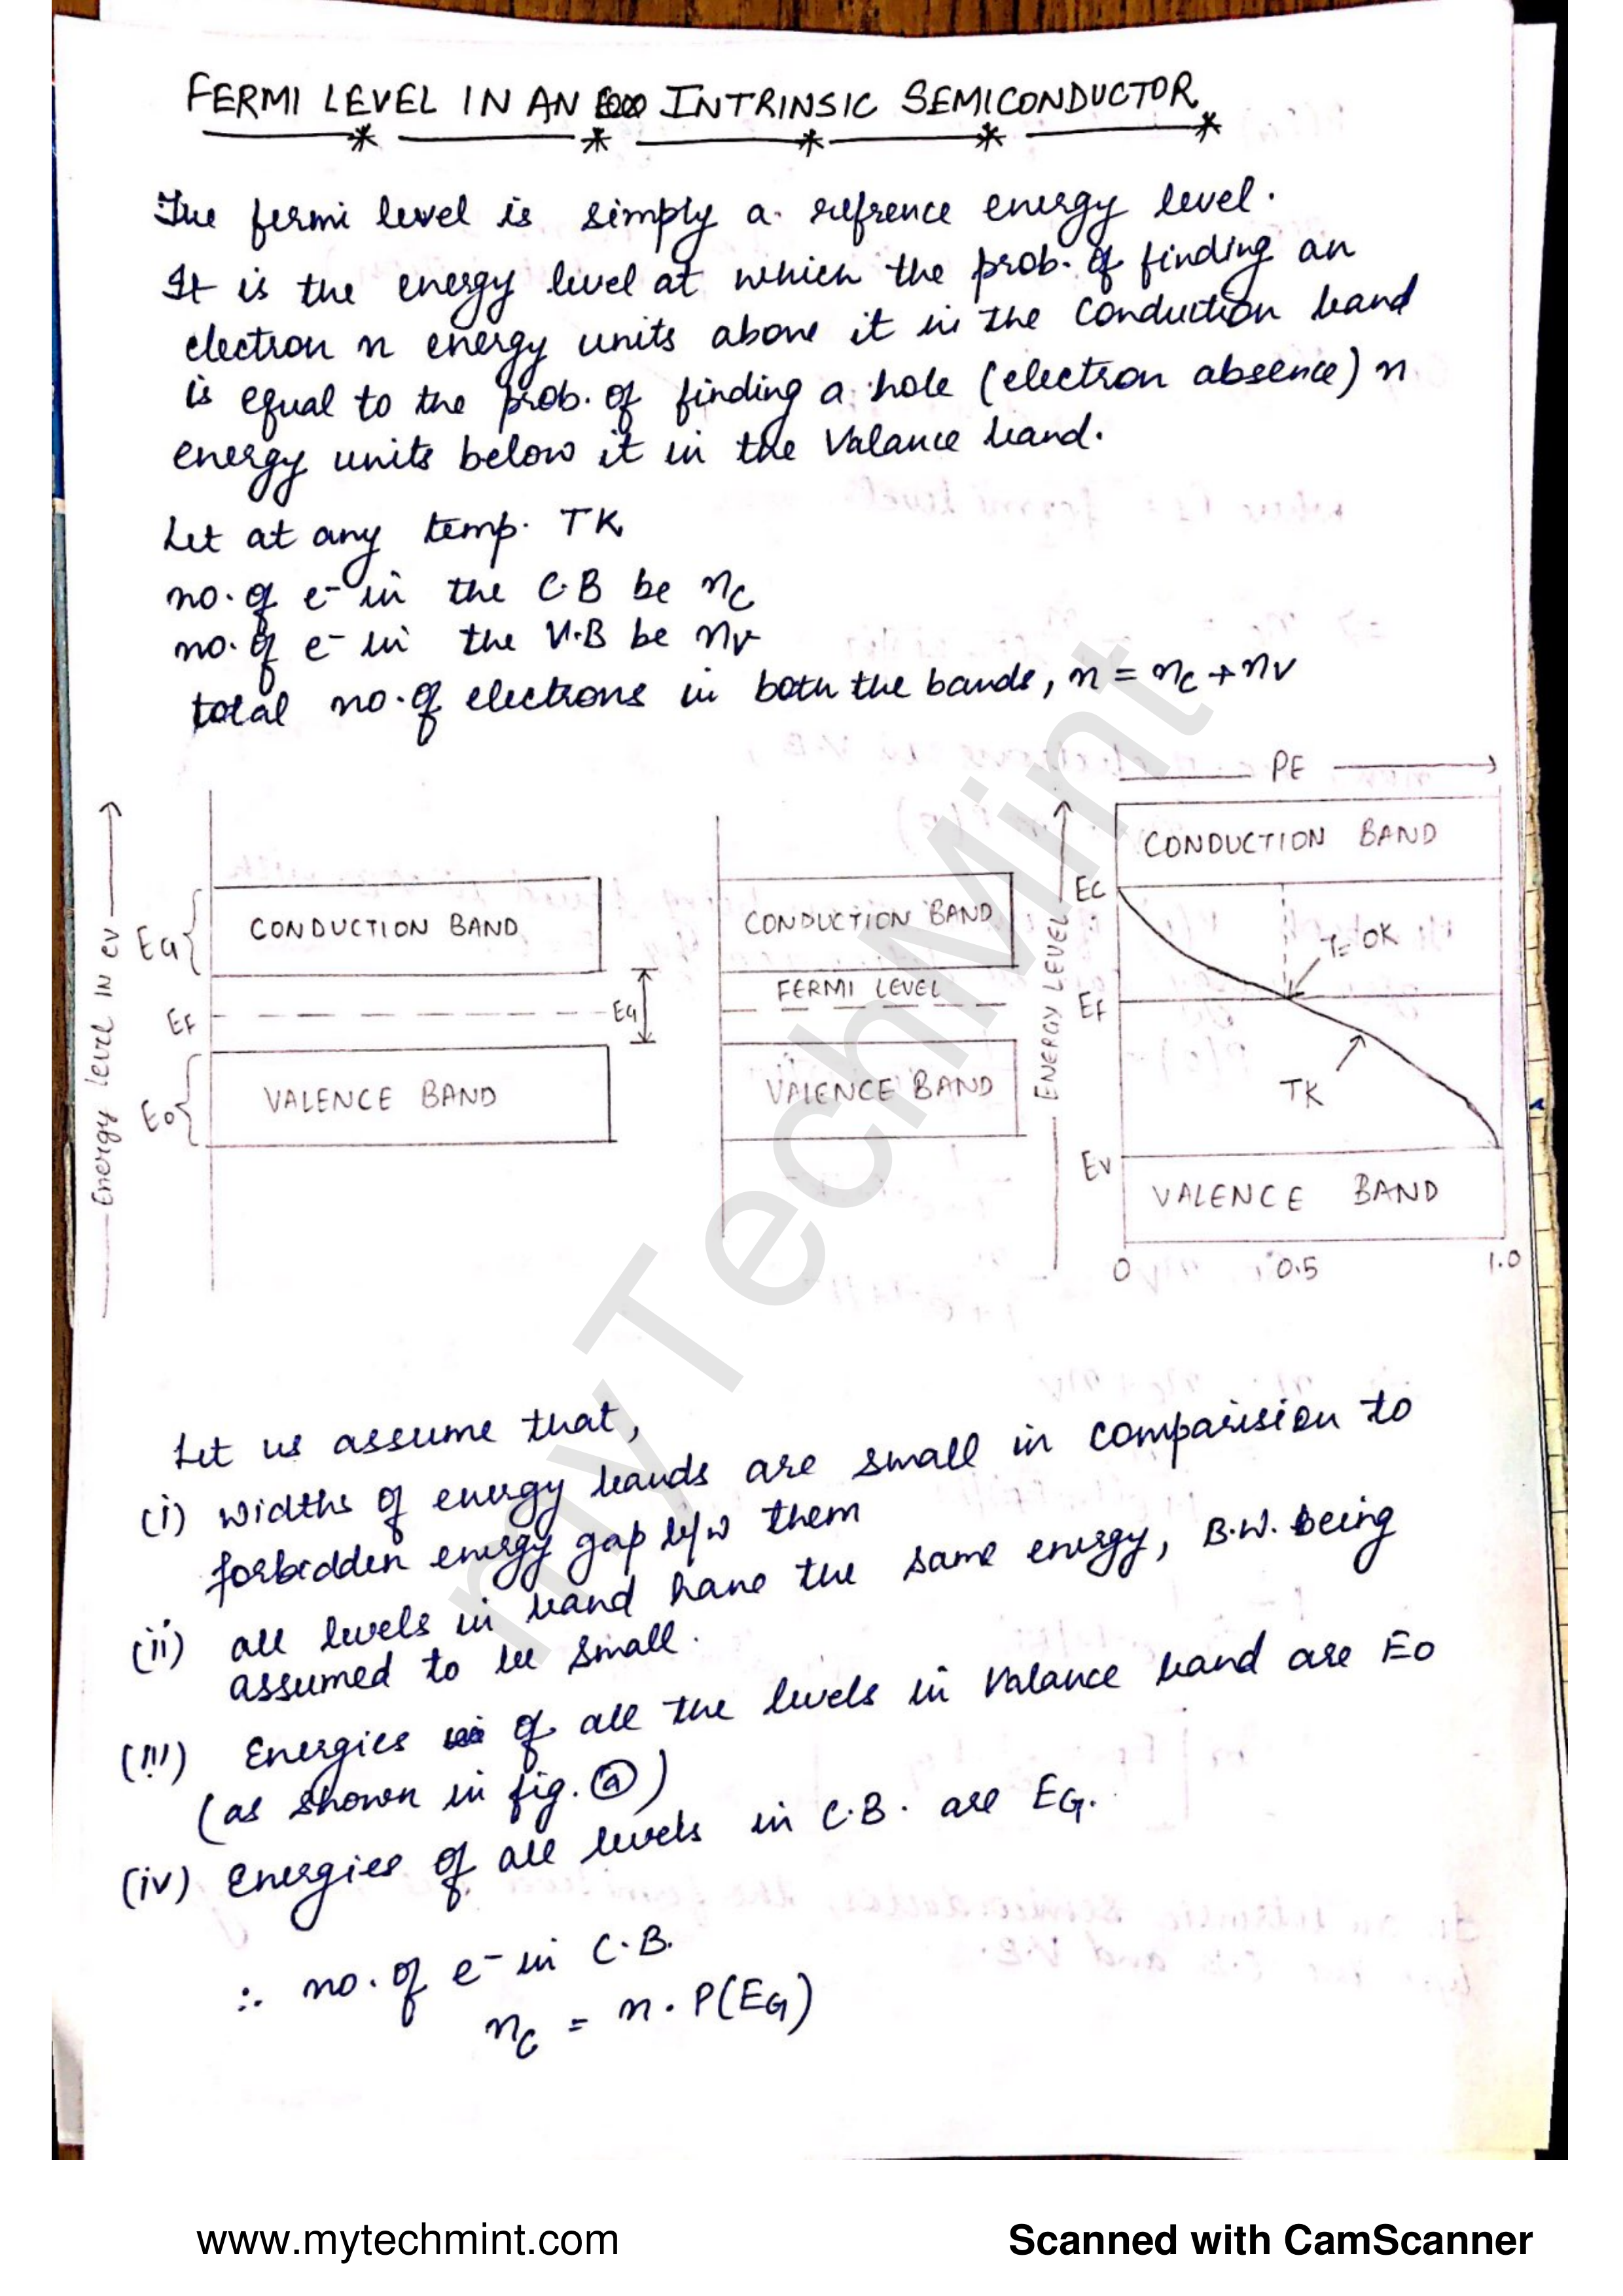 FERMI LEVEL IN AN INTRINSIC SEMICONDUCTOR
The fermi level is simply a refrence energy level.
It is the energy level at which the prob. of finding an
electron n energy units above it in the conduction band
is equal to the prob. of finding a hole (electron absence) n
energy units below it in the Valance band.
Let at any temp. TK
no. of e- in the C.B be nc
no. of e- in the V.B be nv
total no. of electrons in both the bands, n = nc + nv
Energy level IN ev
EG
CONDUCTION BAND
EF
EG
E0
VALENCE BAND
CONDUCTION BAND
FERMI LEVEL
VALENCE BAND
PE
ENERGY LEVEL
CONDUCTION BAND
EC
T=0K
Ef
TK
EV
VALENCE BAND
0 0.5 1.0
Let us assume that,
(i) widths of energy bands are small in comparision to
forbidden energy gap b/w them
(ii) all levels in band have the same energy, B.W. being
assumed to be small.
(iii) Energies of all the levels in Valance band are E0
(as shown in fig. (a))
(iv) Energies of all levels in C.B. are EG.
∴ no. of e- in C.B.
nc = n . P(EG)
myTechMint
www.mytechmint.com
Scanned with CamScanner